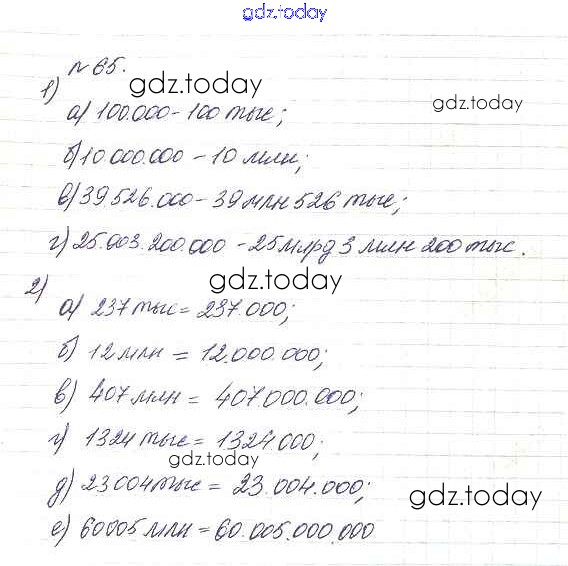 gdz.today
№65.
gdz.today
1)
gdz.today
а) 100.000 - 100 тыс;
б) 10.000.000 - 10 млн;
в) 39526.000 - 39 млн 526 тыс;
г) 25.003.200.000 - 25 млрд 3 млн 200 тыс.
gdz.today
2)
а) 237 тыс = 237.000;
б) 12 млн = 12.000.000;
в) 407 млн = 407000.000;
г) 1324 тыс = 1324.000;
gdz.today
д) 23004 тыс = 23.004.000;
gdz.today
е) 60005 млн = 60.005.000.000